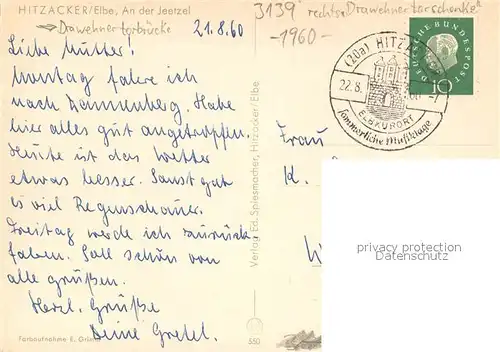 HITZACKER/Elbe, An der Jeetzel
Drawehnertorbrücke
21.8.60
Liebe Mutter!
Montag fahre ich
nach Dannenberg. Habe
hier alles gut angetroffen.
Heute ist das Wetter
etwas besser. Sonst gab
es viel Regenschauer.
Freitag werde ich zurück-
fahren. Soll schön von
alle grüßen.
Herzl. Grüße
Deine Gretel.
Farbaufnahme E. Grimm
550
Verlag Ed. Spiesmacher, Hitzacker/Elbe
3139 rechts „Drawehnertorschenke"
-1960-
(20a) HITZACKER
22.8.
ELBKURORT
Sommerliche Musiktage
DEUTSCHE BUNDESPOST
10
Frau
K.
privacy protection
Datenschutz